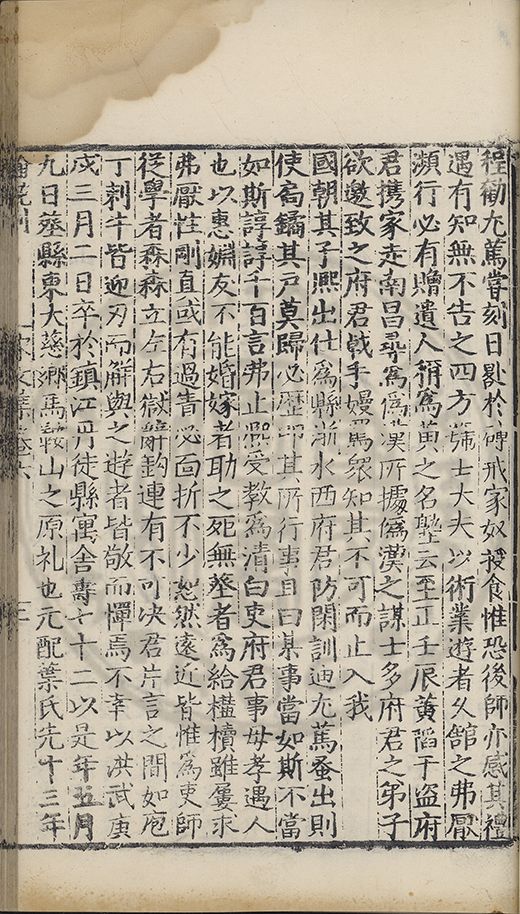 程勸尤篤嘗刻日晷於磚戒家奴授食惟恐後師亦感其禮
遇有知無不告之四方覊士大夫以術業遊者必舘之弗厭
瀕行必有贈遺人稱為黃之名塾云至正壬辰黃陷于盜府
君携家走南昌尋為偽漢所據偽漢之謀士多府君之弟子
欲邀致之府君戟手嫚罵衆知其不可而止入我
國朝其子熙出仕為縣浙水西府君防閑訓迪尤篤蚤出則
使扃鐍其戶莫歸必歷叩其所行事且曰某事當如斯不當
如斯諄諄千百言弗止熙受教為清白吏府君事母孝遇人
也以惠婣友不能婚嫁者助之死無塟者為給櫨櫝雖屢求
弗厭性剛直或有過眚必面折不少恕然遠近皆惟為吏師
從學者森森立左右獄辭鉤連有不可决君片言之間如庖
丁刺牛皆迎刃而解與之遊者皆敬而憚焉不幸以洪武庚
戍三月二日卒於鎮江丹徒縣寓舍壽七十二以是年五月
九日塟縣東大慈鄉馬鞍山之原礼也元配葉氏先十三年